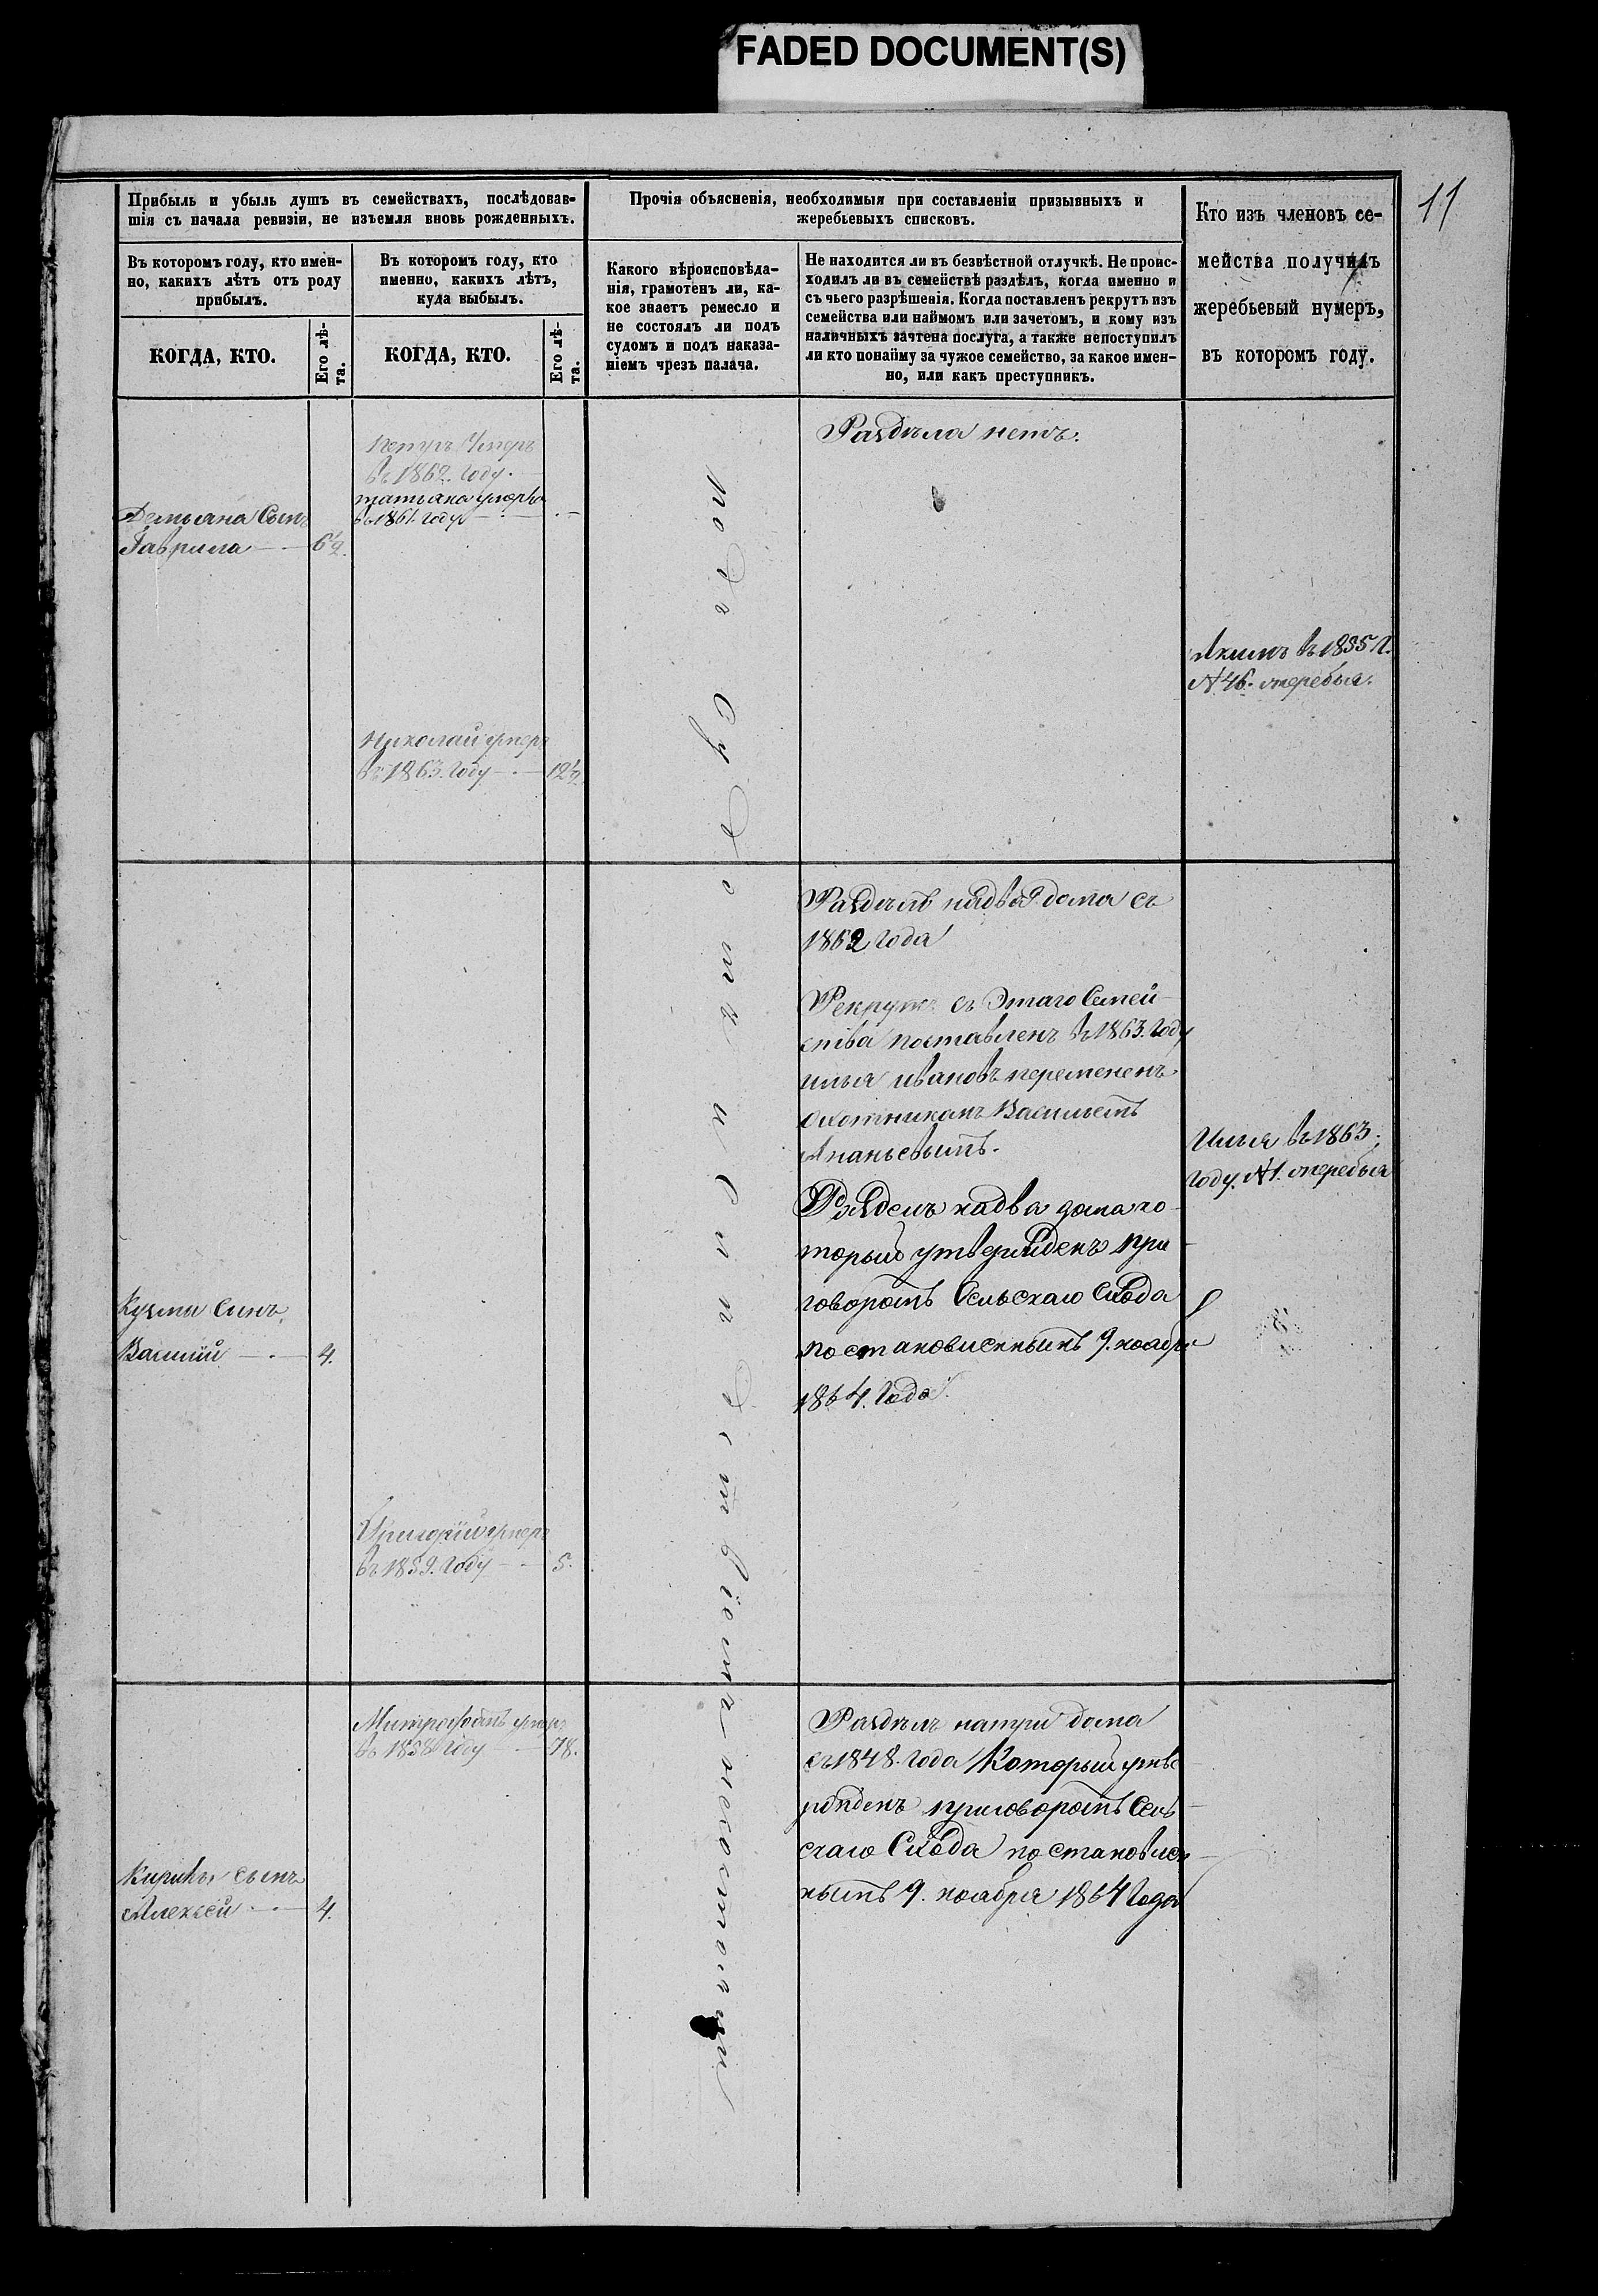 FADED DOCUMENT(S)
11
Прибыль и убыль душъ въ семействахъ, послѣдовав-
шія съ начала ревизіи, не изъемля вновь рожденныхъ.
Прочія объясненія, необходимыя при составленіи призывныхъ и
жеребьевыхъ списковъ.
Кто изъ членовъ се-
мейства получилъ
жеребьевый нумеръ,
въ которомъ году.
Въ которомъ году, кто имен-
но, какихъ лѣтъ отъ роду
прибылъ.
Въ которомъ году, кто
именно, какихъ лѣтъ,
куда выбылъ.
Какого вѣроисповѣда-
нія, грамотенъ ли, ка-
кое знаетъ ремесло и
не состоялъ ли подъ
судомъ и подъ наказа-
ніемъ чрезъ палача.
Не находится ли въ безвѣстной отлучкѣ. Не проис-
ходилъ ли въ семействѣ раздѣлъ, когда именно и
съ чьего разрѣшенія. Когда поставленъ рекрутъ изъ
семейства или наймомъ или зачетомъ, и кому изъ
наличныхъ зачтена послуга, а также непоступилъ
ли кто понайму за чужое семейство, за какое имен-
но, или какъ преступникъ.
КОГДА, КТО.
Его лѣ-
та.
КОГДА, КТО.
Его лѣ-
та.
Петръ умеръ
въ 1862 году.
татьяна умерла
въ 1861 году
Демьяна Сынъ
Гаврила 6½
Николай умеръ
въ 1863. году 12½
Раздѣла нетъ.
Якимъ въ 1855 г.
№ 46. жеребья.
подъ Судомъ и
Раздѣлъ на два дома съ
1862 года
Рекрутъ съ Этаго Семей-
ства поставленъ въ 1863. году
илья ивановъ перемененъ
охотникомъ Васильемъ
Ананьевымъ.
Разделъ на два дома ко-
торый утвержденъ при-
говоромъ Сельскаго Схода
постановленнымъ 9. ноября
1864. Года.
Илья въ 1863.
году. №1. жеребья
Кузмы Сынъ
Василий 4.
Григорий умеръ
въ 1859. году 5.
Митрофанъ умеръ
въ 1858 году 78.
Кирилы сынъ
Алексѣй 4.
Раздѣлъ на три дома
съ 1848. года Который утве-
ржденъ приговоромъ Сель-
скаго Схода постановлен-
нымъ 9. ноября 1864 Года